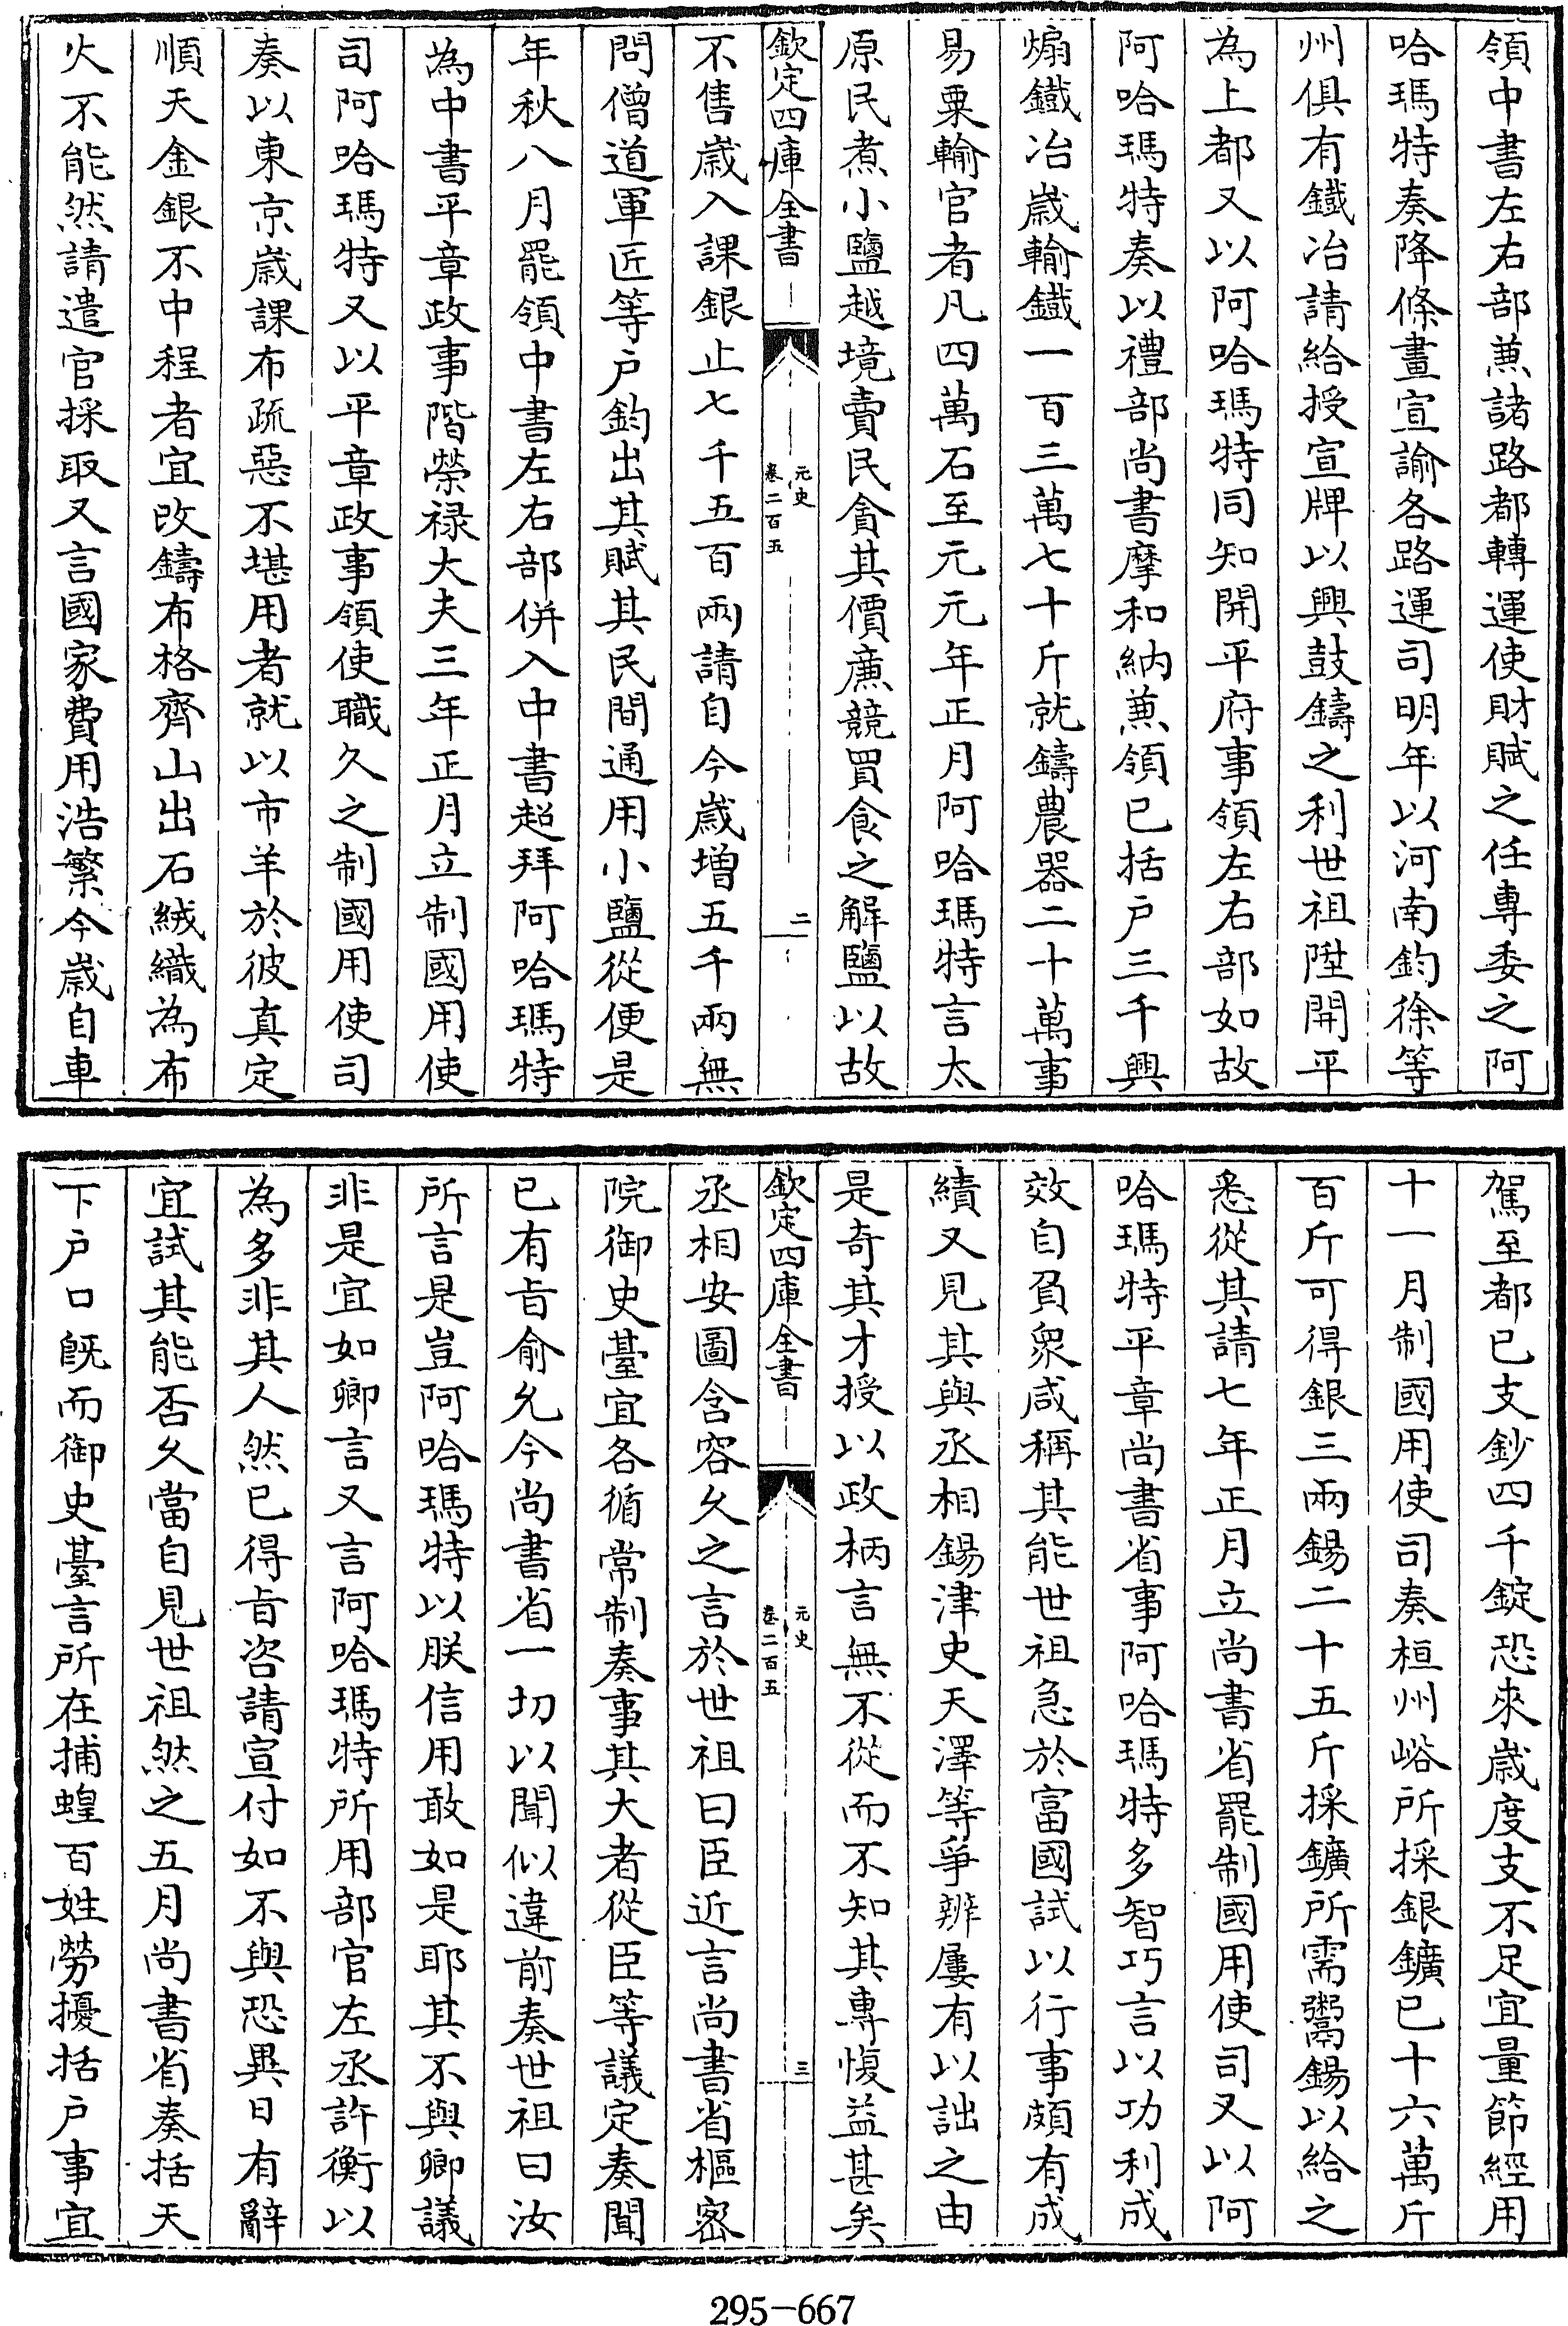 領中書左右部兼諸路都轉運使財賦之任專委之阿
哈瑪特奏降條畫宣諭各路運司明年以河南鈞徐等
州俱有鐵冶請給授宣牌以興鼓鑄之利世祖陞開平
為上都又以阿哈瑪特同知開平府事領左右部如故
阿哈瑪特奏以禮部尚書摩和納兼領已括户三千興
煽鐵冶歲輸鐵一百三萬七十斤就鑄農器二十萬事
易粟輸官者凡四萬石至元元年正月阿哈瑪特言太
原民煮小鹽越境賣民貪其價廉競買食之解鹽以故
欽定四庫全書
元史
卷二百五
二
不售歲入課銀止七千五百兩請自今歲增五千兩無
問僧道軍匠等户鈞出其賦其民間通用小鹽從便是
年秋八月罷領中書左右部併入中書超拜阿哈瑪特
為中書平章政事階榮禄大夫三年正月立制國用使
司阿哈瑪特又以平章政事領使職久之制國用使司
奏以東京歲課布疏惡不堪用者就以市羊於彼真定
順天金銀不中程者宜改鑄布格齊山出石絨織為布
火不能然請遣官採取又言國家費用浩繁今歲自車
駕至都已支鈔四千錠恐來歲度支不足宜量節經用
十一月制國用使司奏桓州峪所採銀鑛已十六萬斤
百斤可得銀三兩錫二十五斤採鑛所需鬻錫以給之
悉從其請七年正月立尚書省罷制國用使司又以阿
哈瑪特平章尚書省事阿哈瑪特多智巧言以功利成
效自負衆咸稱其能世祖急於富國試以行事頗有成
績又見其與丞相錫津史天澤等爭辨屢有以詘之由
是奇其才授以政柄言無不從而不知其專愎益甚矣
欽定四庫全書
元史
卷二百五
三
丞相安圖含容久之言於世祖曰臣近言尚書省樞密
院御史臺宜各循常制奏事其大者從臣等議定奏聞
已有旨俞允今尚書省一切以聞似違前奏世祖曰汝
所言是豈阿哈瑪特以朕信用敢如是耶其不與卿議
非是宜如卿言又言阿哈瑪特所用部官左丞許衡以
為多非其人然已得旨咨請宣付如不與恐異日有辭
宜試其能否久當自見世祖然之五月尚書省奏括天
下户口既而御史臺言所在捕蝗百姓勞擾括户事宜
295-667